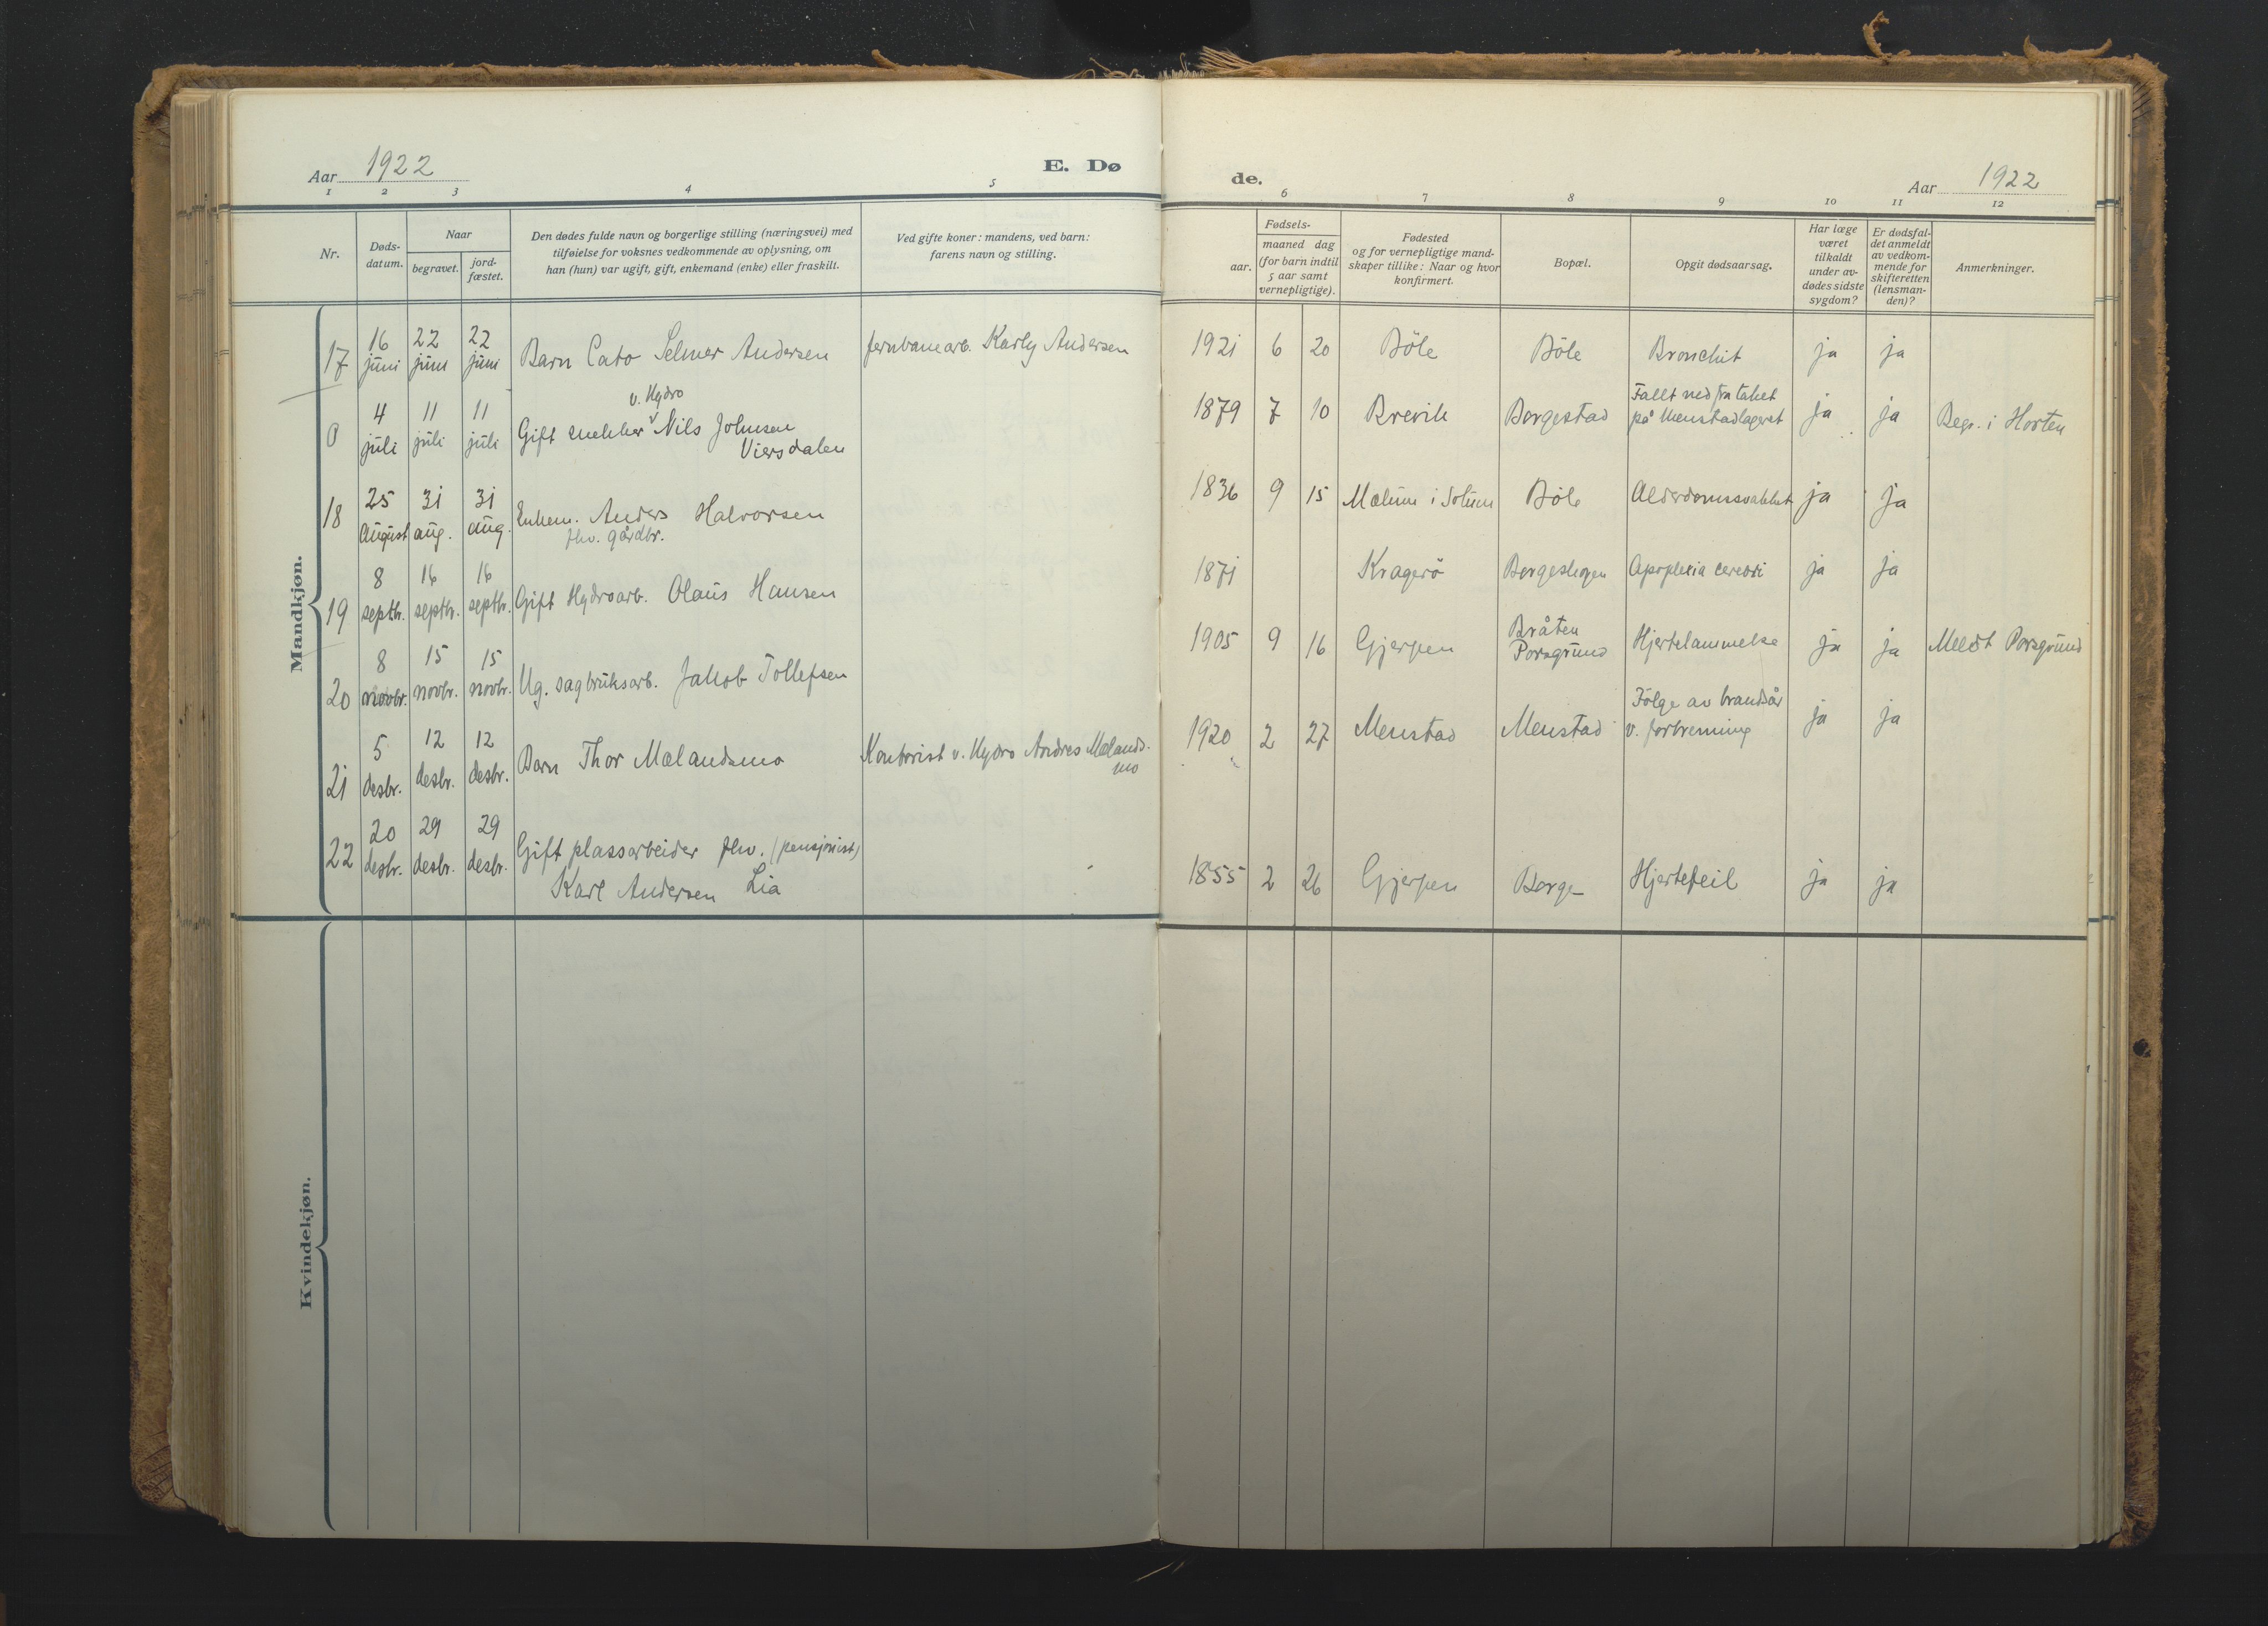 Aar 1922
E. Dø
de.
Aar 1922
1 2 3 4 5 6 7 8 9 10 11 12
Nr.
Døds-
datum.
Naar
begravet.
jord-
fæstet.
Den dødes fulde navn og borgerlige stilling (næringsvei) med
tilføielse for voksnes vedkommende av oplysning, om
han (hun) var ugift, gift, enkemand (enke) eller fraskilt.
Ved gifte koner: mandens, ved barn:
farens navn og stilling.
Fødsels-
aar.
maaned dag
(for barn indtil
5 aar samt
vernepligtige).
Fødested
og for vernepligtige mand-
skaper tillike: Naar og hvor
konfirmert.
Bopæl.
Opgit dødsaarsag.
Har læge
været
tilkaldt
under av-
dødes sidste
sygdom?
Er dødsfal-
det anmeldt
av vedkom-
mende for
skifteretten
(lensman-
den)?
Anmerkninger.
Mandkjøn.
17 16 juni 22 juni 22 juni Barn Cato Selmer Andersen Jernbanearb. Karly Andersen 1921 6 20 Böle Böle Bronchit ja ja
v. Hydro
0 4 juli 11 juli 11 juli Gift snekker Nils Johnsen
Viersdalen
1879 7 10 Brevik Borgestad Fallt ned fra taket
på Menstadlageret ja ja Begr. i Horten
18 25 August 31 aug. 31 aug. Enkem. Anders Halvorsen
fhv. gårdbr.
1836 9 15 Mælum i Solum Böle Alderdomssvakhet ja ja
19 8 septbr. 16 septbr. 16 septbr. Gift Hydroarb. Olaus Hansen 1871 Kragerö Borgeskogen Apoplexia cerebri ja ja
20 8 novbr. 15 novbr. 15 novbr. Ug. sagbruksarb. Jakob Tollefsen 1905 9 16 Gjerpen Bråten
Porsgrund Hjertelammelse ja ja Meldt Porsgrund
21 5 desbr. 12 desbr. 12 desbr. Barn Thor Mælandsmo Kontorist v. Hydro Andres Mælands-
mo
1920 2 27 Menstad Menstad Fölge av brandsår
v. forbrenning ja ja
22 20 desbr. 29 desbr. 29 desbr. Gift plassarbeider fhv. (pensjonist)
Karl Andersen Lia
1855 2 26 Gjerpen Borge Hjertefeil ja ja
Kvindekjøn.